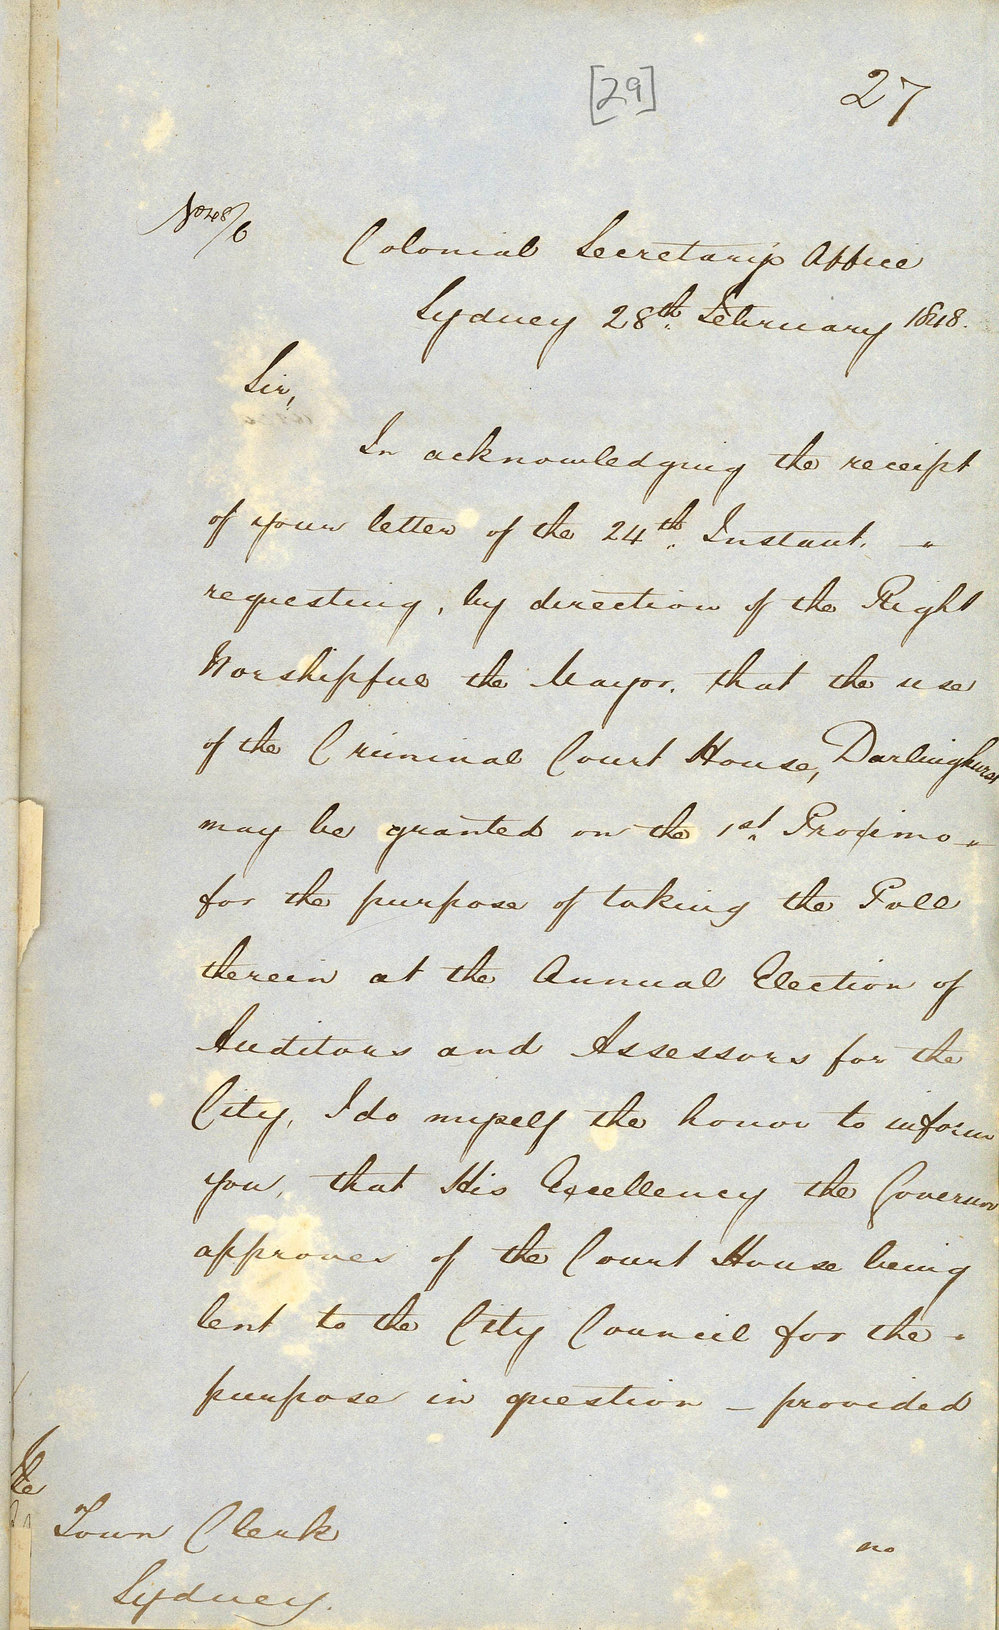 [29]
27
No 48/6
Colonial Secretary's Office
Sydney 28th. February 1848.
Sir,
In acknowledging the receipt
of your letter of the 24th. Instant. "
requesting, by direction of the Right
Worshipful the Mayor. that the use
of the Criminal Court House, Darlinghurst
may be granted on the 1st. Proximo "
for the purpose of taking the Poll
therein at the Annual Election of
Auditors and Assessors for the
City, I do myself the honor to inform
you, that His Excellency the Governor
approves of the Court House being
lent to the City Council for the "
purpose in question – provided
The
Town Clerk
Sydney.
no